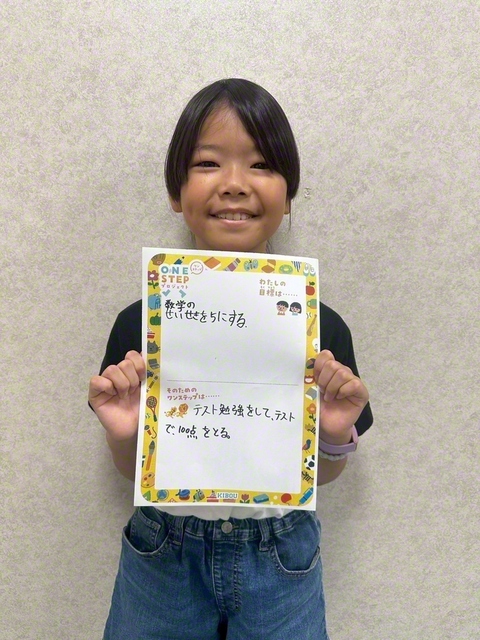 ONE
STEP
プロジェクト
わたしの
目標は……
数学の
せいせきを5にする。
そのための
ワンステップは……
テスト勉強をして、テスト
で、100点をとる。
KIBOU